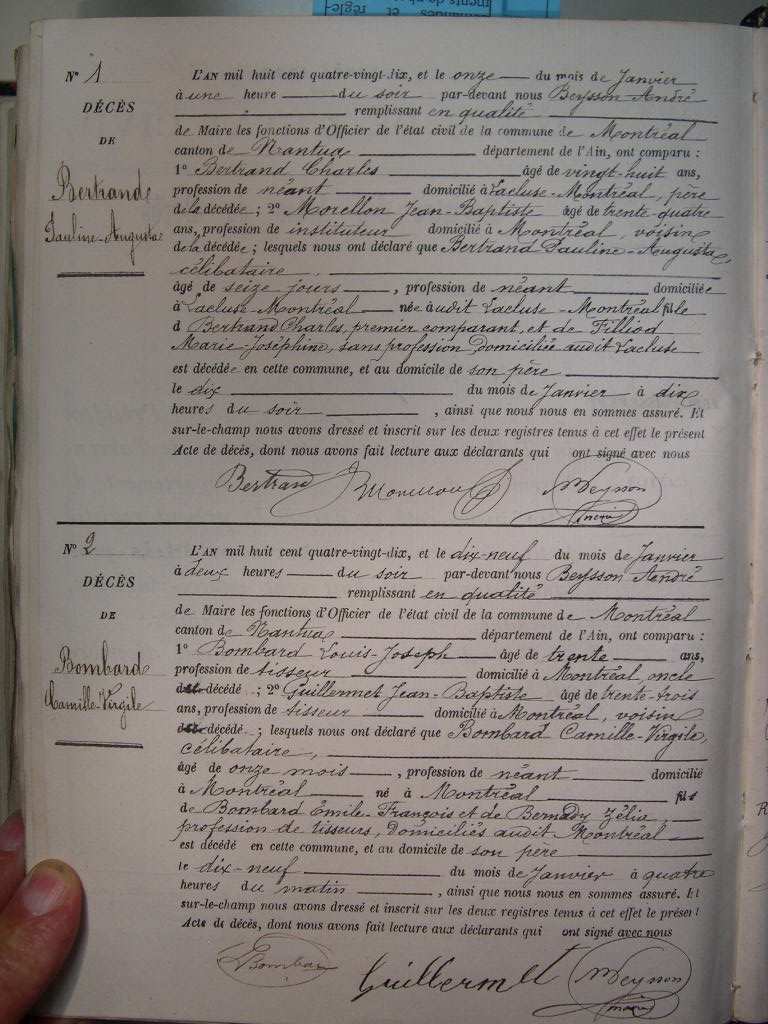 N° 1
DÉCÈS
DE
Bertrand
Pauline-Augusta
L'AN mil huit cent quatre-vingt-dix, et le onze du mois de Janvier
à une heure du soir par-devant nous Beysson André
remplissant en qualité
de Maire les fonctions d'Officier de l'état civil de la commune de Montréal
canton de Nantua département de l'Ain, ont comparu :
1° Bertrand Charles âgé de vingt-huit ans,
profession de néant domicilié à Lacluse-Montréal, père
de la décédée ; 2° Morellon Jean-Baptiste âgé de trente-quatre
ans, profession de instituteur domicilié à Montréal, voisin
de la décédée ; lesquels nous ont déclaré que Bertrand Pauline-Augusta,
célibataire,
âgé de seize jours, profession de néant domiciliée
à Lacluse-Montréal née audit Lacluse-Montréal fille
d Bertrand Charles, premier comparant, et de Filliod
Marie-Joséphine, sans profession Domiciliée audit Lacluse
est décédée en cette commune, et au domicile de son père
le dix du mois de Janvier à dix
heures du soir, ainsi que nous nous en sommes assuré. Et
sur-le-champ nous avons dressé et inscrit sur les deux registres tenus à cet effet le présent
Acte de décès, dont nous avons fait lecture aux déclarants qui ont signé avec nous
Bertrand
N° 2
DÉCÈS
DE
Bombard
Camille-Virgile
L'AN mil huit cent quatre-vingt-dix, et le dix-neuf du mois de Janvier
à deux heures du soir par-devant nous Beysson André
remplissant en qualité
de Maire les fonctions d'Officier de l'état civil de la commune de Montréal
canton de Nantua département de l'Ain, ont comparu :
1° Bombard Louis-Joseph âgé de trente ans,
profession de tisseur domicilié à Montréal, oncle
décédé ; 2° Guillermet Jean-Baptiste âgé de trente-trois
ans, profession de tisseur domicilié à Montréal, voisin
décédé ; lesquels nous ont déclaré que Bombard Camille-Virgile,
célibataire,
âgé de onze mois, profession de néant domicilié
à Montréal né à Montréal fils
de Bombard Emile-François et de Zélie,
profession de tisseurs, Domiciliés audit Montréal
est décédé en cette commune, et au domicile de son père
le dix-neuf du mois de Janvier à quatre
heures du matin, ainsi que nous nous en sommes assuré. Et
sur-le-champ nous avons dressé et inscrit sur les deux registres tenus à cet effet le présent
Acte de décès, dont nous avons fait lecture aux déclarants qui ont signé avec nous
Bombar Guillermet